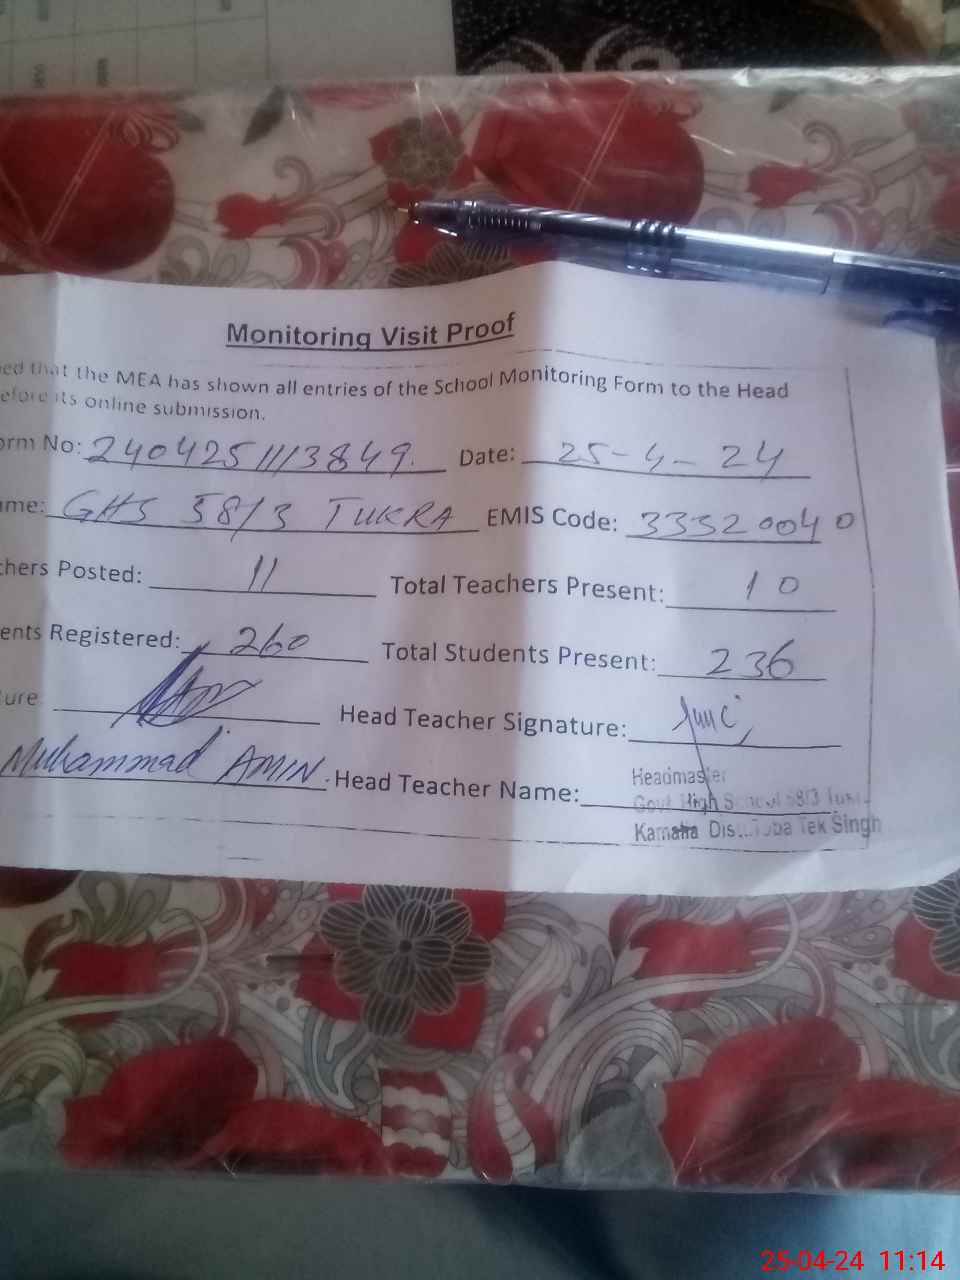 Monitoring Visit Proof
ed that the MEA has shown all entries of the School Monitoring Form to the Head
efore its online submission.
orm No: 2404251113849. Date: 25-4-24
me: GHS 58/3 TUKRA EMIS Code: 33320040
hers Posted: 11 Total Teachers Present: 10
ents Registered: 260 Total Students Present: 236
ure: Head Teacher Signature:
Muhammad AMIN. Head Teacher Name:
Headmaster
Govt High School 58/3
Kamalia Dis Toba Tek Singh
25-04-24 11:14